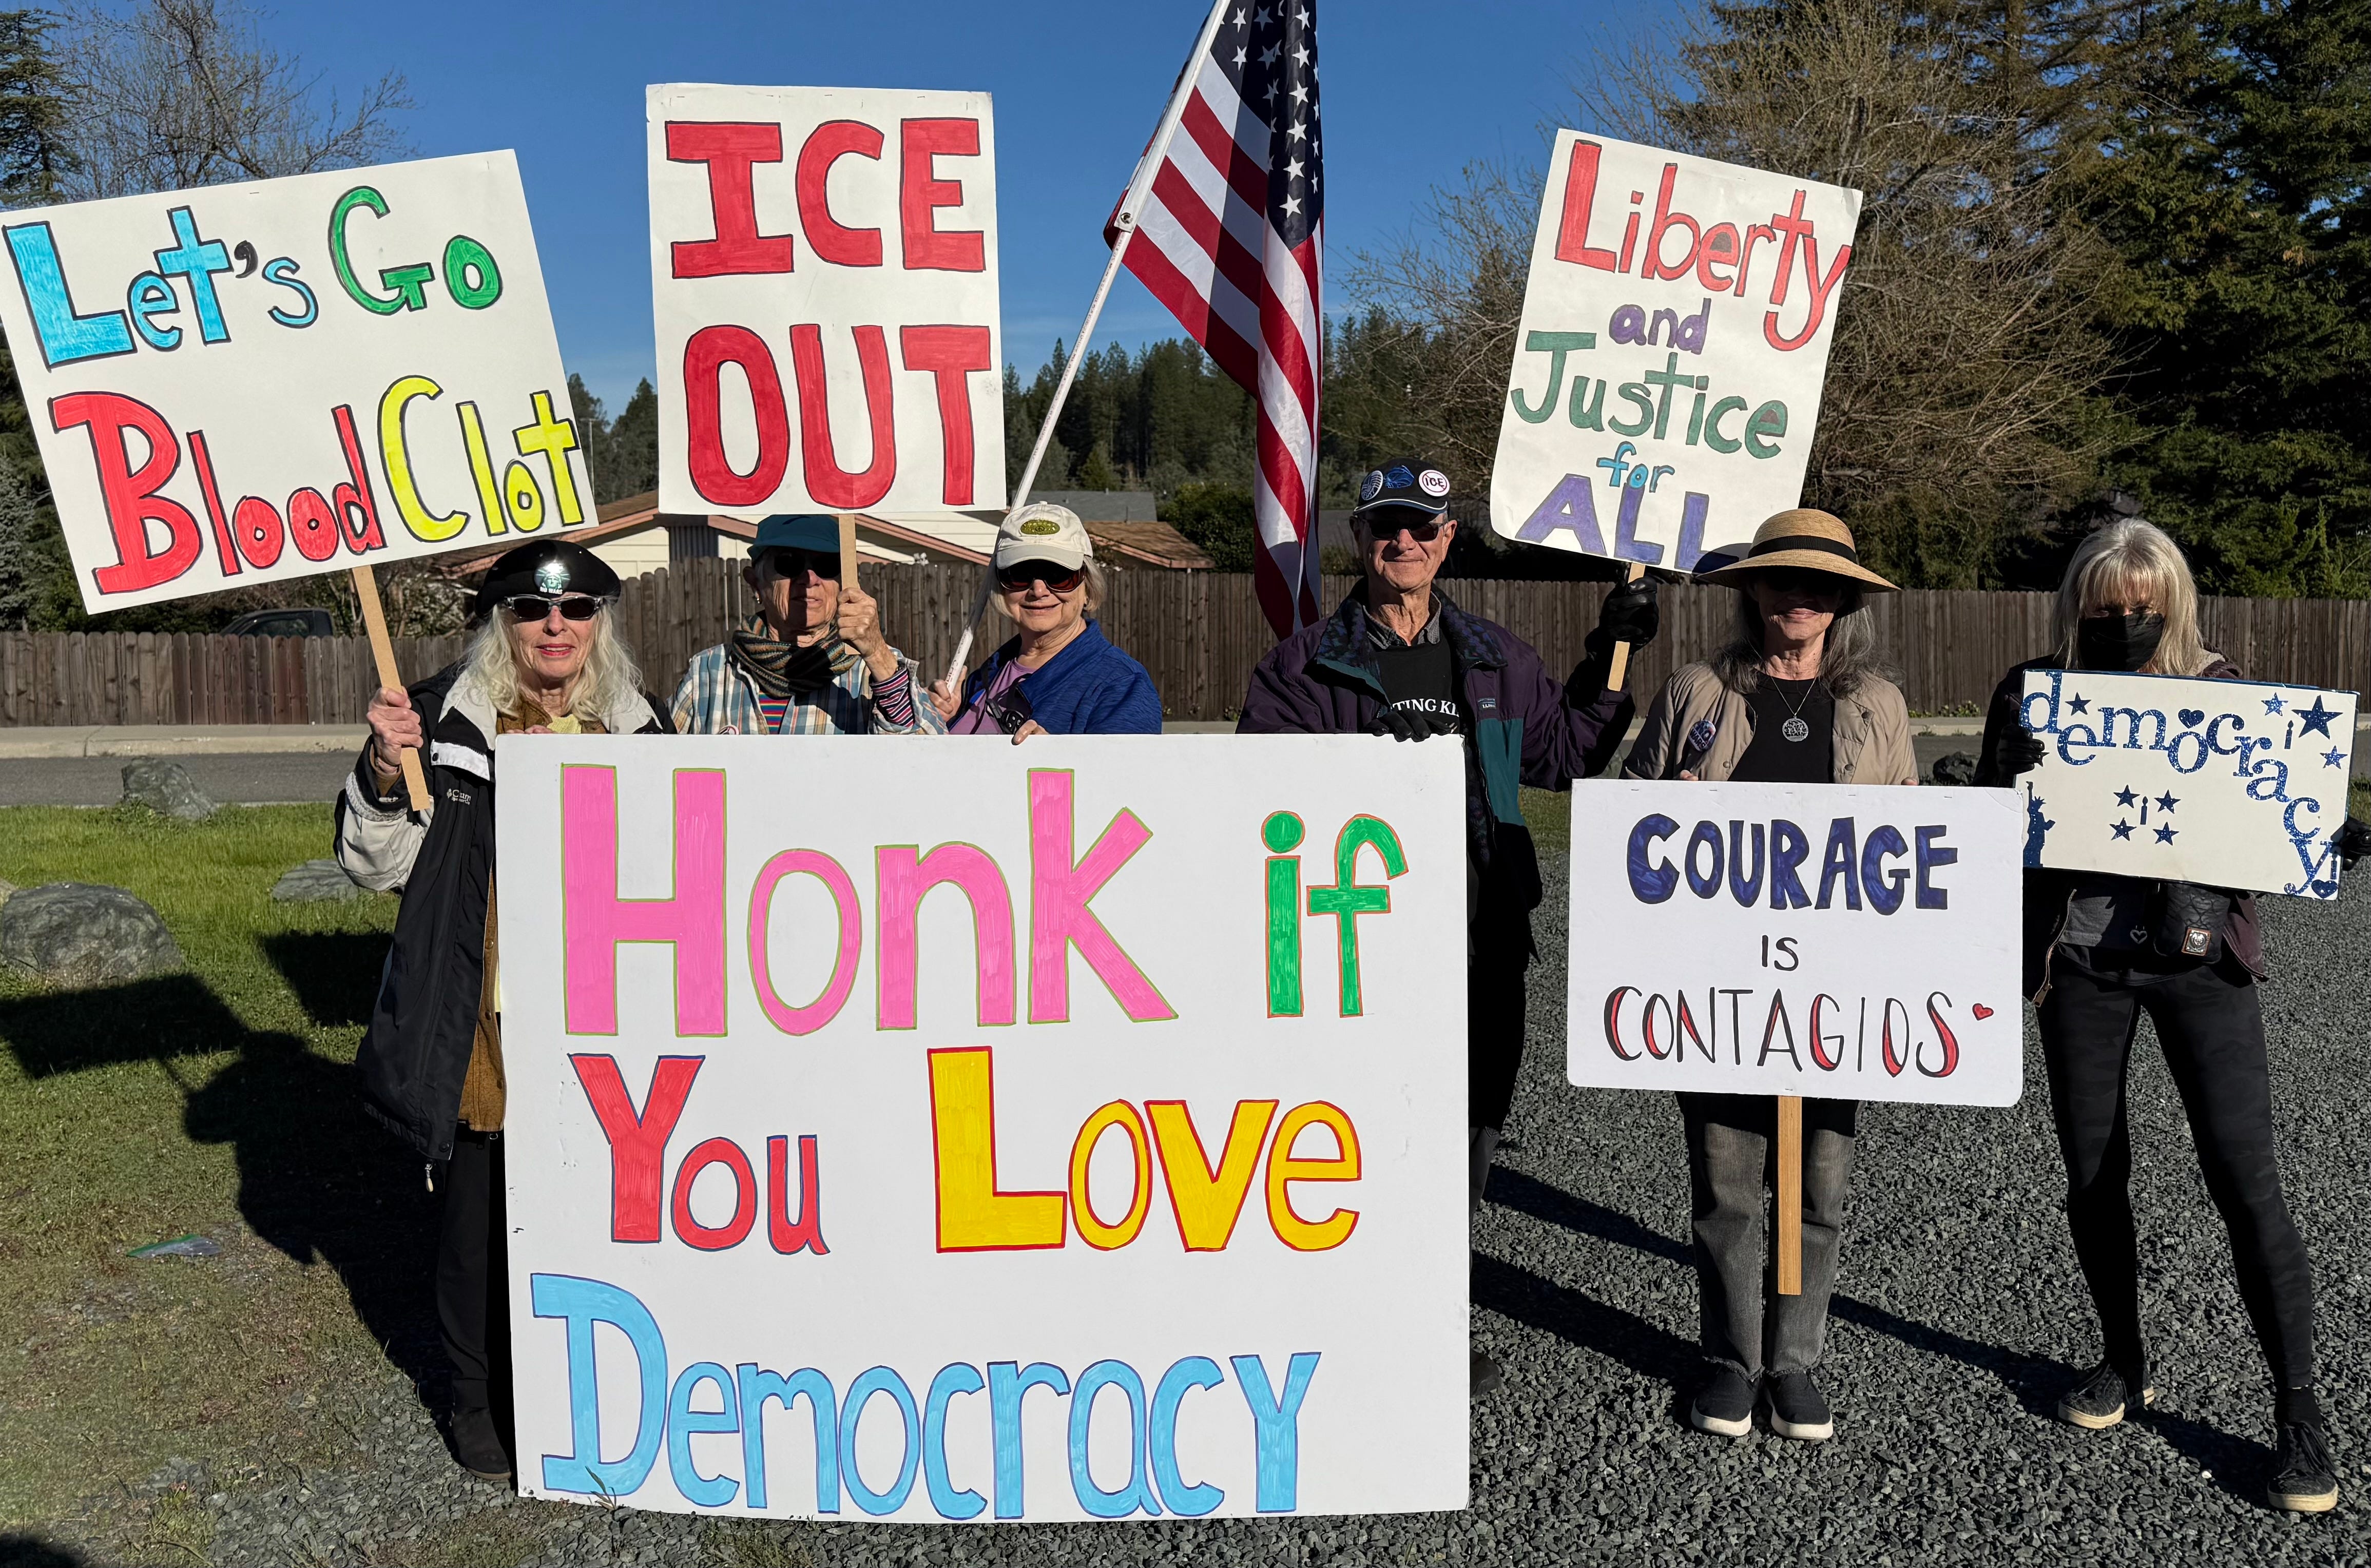 Let's Go
Blood Clot
ICE
OUT
Liberty
and
Justice
for
ALL
ICE
NO KINGS
TING KI
Honk if
You Love
Democracy
COURAGE
IS
CONTAGIOS
democracy